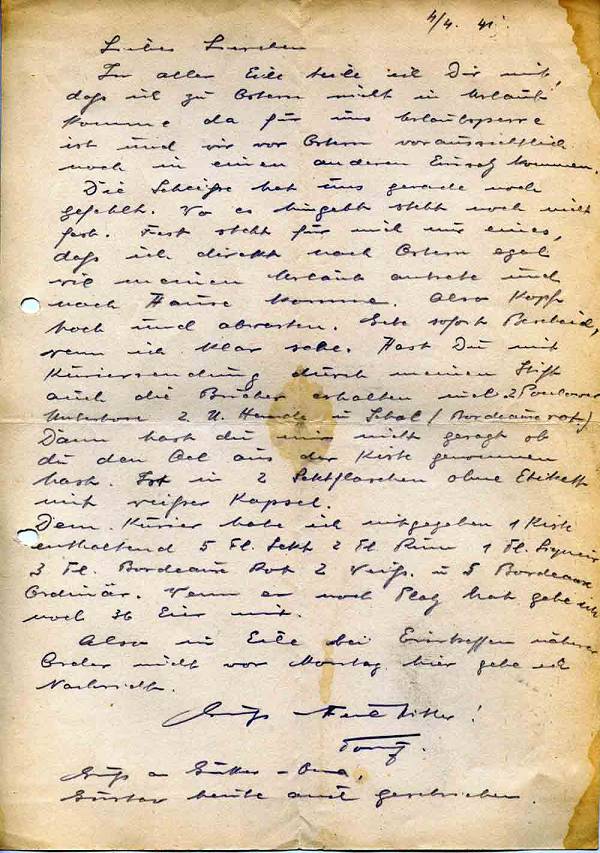 4/4. 41.
Liebes Lieschen
In aller Eile teile ich Dir mit,
dass ich zu Ostern nicht in Urlaub
komme da für uns Urlaubssperre
ist und wir vor Ostern voraussichtlich
noch in einen anderen Einsatz kommen.
Die Scheisse hat uns gerade noch
gefehlt. Wo es hingeht steht noch nicht
fest. Fest steht für mich nur eines,
dass ich direkt nach Ostern egal
wie meinen Urlaub antrete und
nach Hause komme. Also Kopf
hoch und abwarten. Gebe sofort Bescheid,
wenn ich klar sehe. Hast Du mit
Kuriersendung durch meinen
auch die Bücher erhalten incl. 2 Poulower
Unterhose 2 U. Hemde u Schal (Bordeaux rot)
Dann hast du mir nicht gesagt ob
du den Oel aus der Kiste genommen
hast. Ist in 2 Sektflaschen ohne Etikett
mit weißer Kapsel.
Dem Kurier habe ich mitgegeben 1 Kiste
enthaltend 5 Fl. Sekt 2 Fl. Rum 1 Fl. Liqueur
3 Fl. Bordeaux Rot 2 Weiß. u 5 Bordeaux
Ordinär. Wenn er noch Platz hat gebe ich
noch 36 Eier mit.
Also in Eile bei Eintreffen näherer
Order nicht vor Montag hier gebe ich
Nachricht.
Gruß Heil Hitler!
Gruß an Mutter -
Gustav heute auch geschrieben.